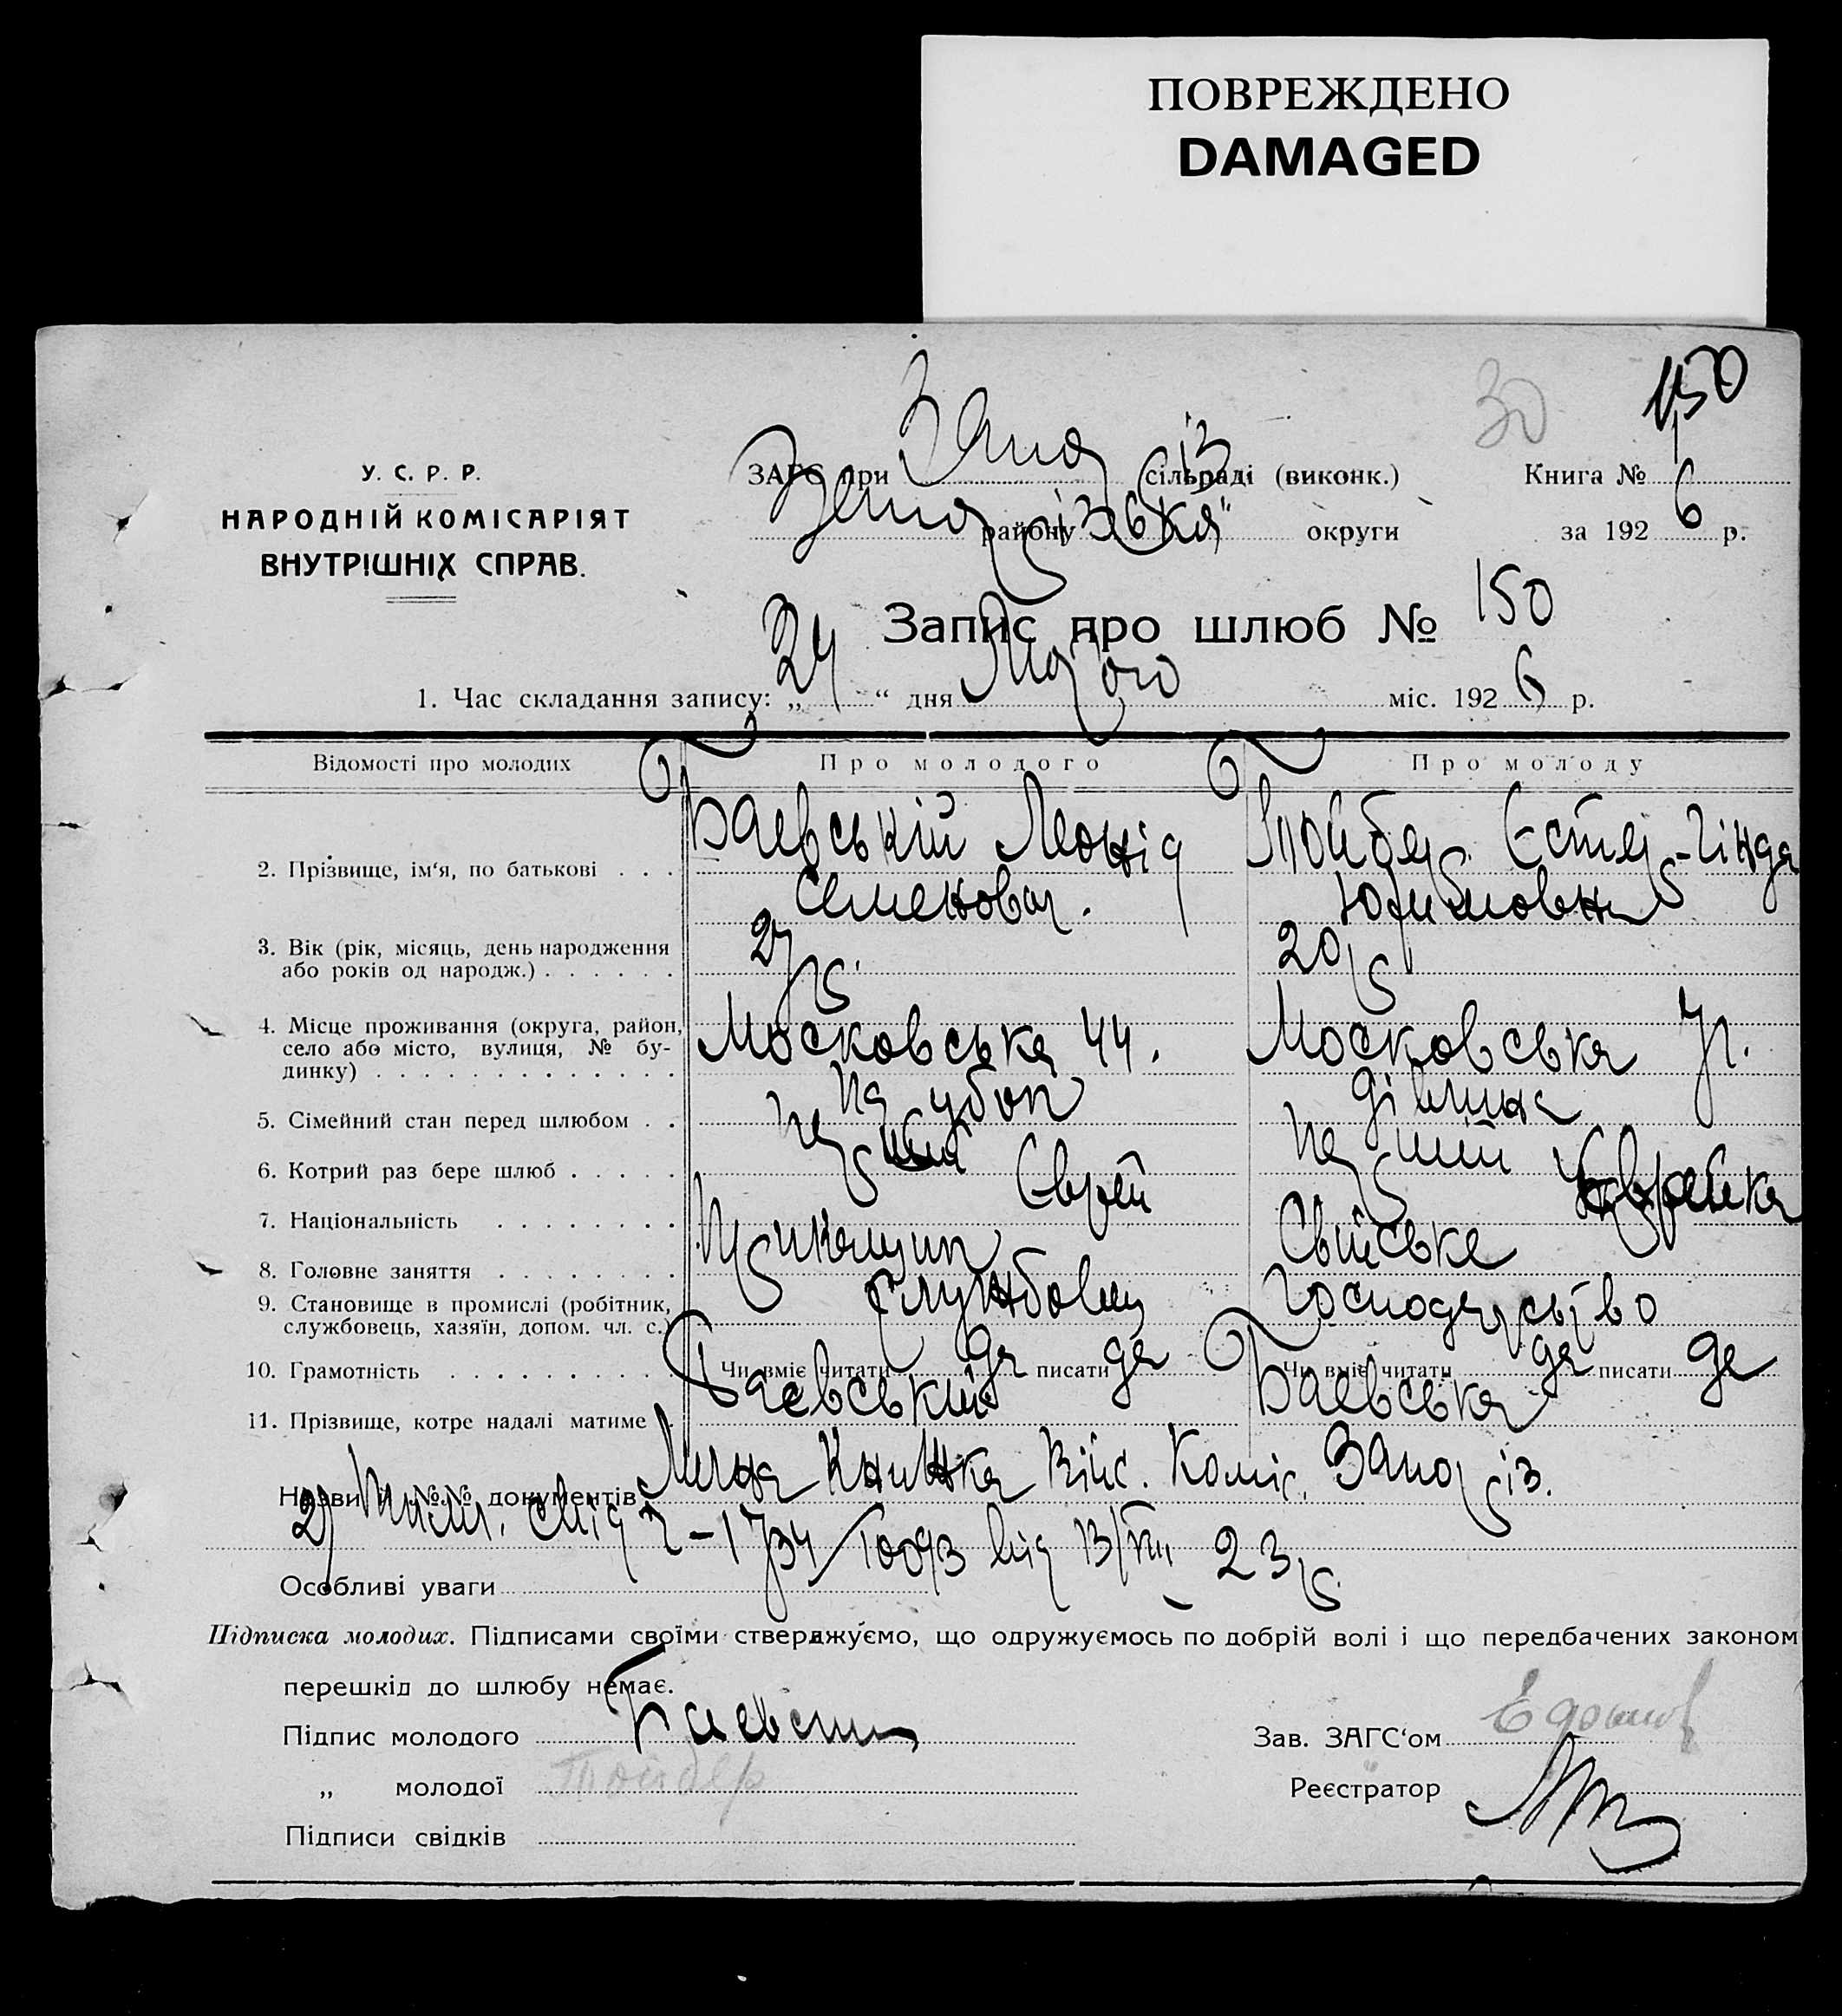 ПОВРЕЖДЕНО
DAMAGED
30
150
У. С. Р. Р.
НАРОДНІЙ КОМІСАРІЯТ
ВНУТРІШНІХ СПРАВ.
ЗАГС при Запоріз сільраді (виконк.)
Книга № 1
району округи
за 1926 р.
Запис про шлюб № 150
1. Час складання запису: „24“ дня Лютого міс. 1926 р.
Відомості про молодих
Про молодого
Про молоду
2. Прізвище, ім‘я, по батькові . . .
Баевській Леонід
Семенович.
Тойбер Єстер-Гінда
3. Вік (рік, місяць, день народження
або років од народж.) . . . . . .
27 р.
20 р
4. Місце проживання (округа, район,
село або місто, вулиця, № бу-
динку) . . . . . . . . . . . . .
Московська 44.
Московська
5. Сімейний стан перед шлюбом . .
парубок
дівчина
6. Котрий раз бере шлюб . . . . .
перший
перший
7. Національність . . . . . . . .
Єврей
Єврейка
8. Головне заняття . . . . . . . .
Прикащик
Свійське
9. Становище в промислі (робітник,
службовець, хазяїн, допом. чл. с.)
службовець
господарство
10. Грамотність . . . . . . . . . .
Чи вміє читати да писати да
Чи вміє читати да писати да
11. Прізвище, котре надалі матиме .
Баєвський
Баевська
Назви і №№ документів Лична Книжка Війс. Коміс. Запоріз.
2) від 13/VIII 23 р.
Особливі уваги
Підписка молодих. Підписами своїми стверджуємо, що одружуємось по добрій волі і що передбачених законом
перешкід до шлюбу немає.
Підпис молодого Баевски
Зав. ЗАГС‘ом
„ молодої Тойбер
Реєстратор
Підписи свідків